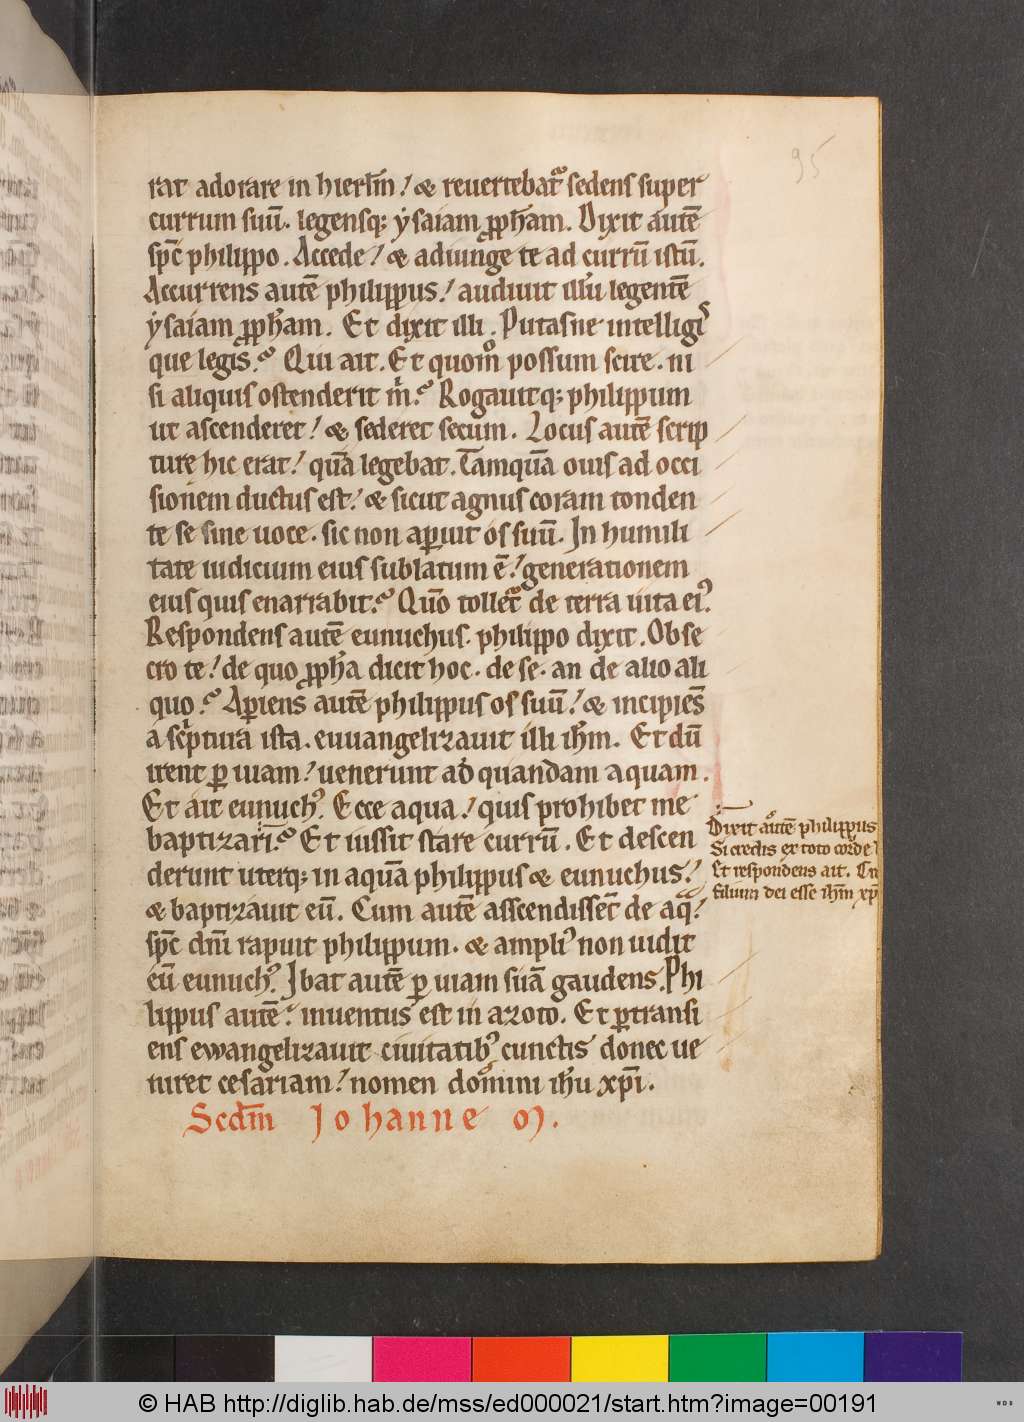 95
rat adorare in hierl̄m / & reuertebat᷑ sedens super
currum suū. legensq; ẏsaiam ꝓph̄am. Dixit autē
sp̄c philippo. Accede / & adiunge te ad currū istū.
Accurrens autē philippus / audiuit illū legentē
ẏsaiam ꝓph̄am. Et dixit illi. Putasne intelligis
que legis? Qui ait. Et quom̊ possum scire. ni
si aliquis ostenderit m̍? Rogauitq; philippum
ut ascenderet / & sederet secum. Locus autē scrip
turę hic erat / quā legebat. Tamquā ouis ad occi
sionem ductus est / & sicut agnus coram tonden
te se sine uoce. sic non aꝑuit os suū. In humili
tate iudicium eius sublatum ē / generationem
eius quis enarrabit? Qūo tollet᷑ de terra uita eiꝰ.
Respondens autē eunuchus. philippo dixit. Obse
cro te / de quo ꝓph̄a dicit hoc. de se. an de alio ali
quo? Aꝑiens autē philippus os suū / & incipiēs
a scͥptura ista. euuangelizauit illi ih̄m. Et dū
irent ꝑ uiam / uenerunt ad quandam aquam.
Et ait eunuchꝰ. Ecce aqua / quis prohibet me
baptizari? Et iussit stare currū. Et descen
derunt uterq; in aquā philippus & eunuchus /
& baptizauit eū. Cum autē asscendissēt de aq̄ /
sp̄c dn̄i rapuit philippum. & ampliꝰ non uidit
eū eunuchꝰ. Ibat autē ꝑ uiam suā gaudens. Phi
lippus autē / inuentus est in azoto. Et ꝑtransi
ens ewangelizauit ciuitatibꝰ cunctis donec ue
niret cesariam / nomen domini ih̄u xp̄i.
Scd̄m Johanne m.
Dixit autē philippus
Si credis ex toto corde
Et respondens ait. C
filium dei esse ih̄m xp̄
© HAB http://diglib.hab.de/mss/ed000021/start.htm?image=00191